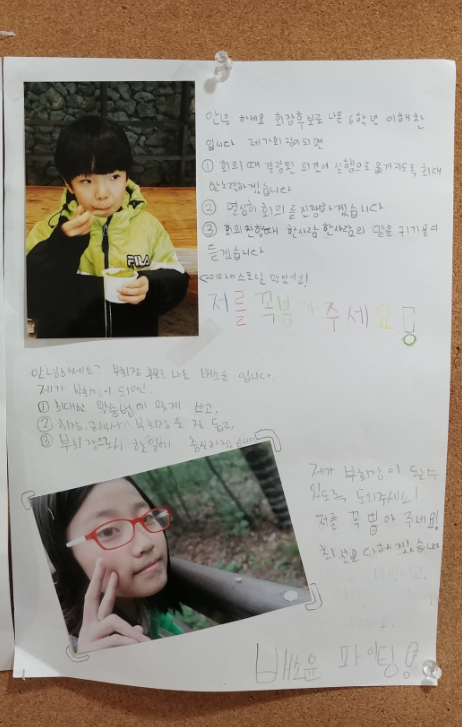 안녕 하세요 회장후보로 나온 6학년 이해찬
입니다 제가 회장이 되면
① 회의 때 결정된 의견이 실행으로 옮겨지도록 최대
한 노력하겠습니다
② 열심히 회의를 진행하겠습니다
③ 회의진행때 한사람 한사람의 말을 귀기울여
듣겠습니다
FILA
저를 꼭 뽑아 주세요!
안녕하세요? 부회장 후보로 나온 배소윤 입니다.
제가 부회장이 되면,
① 최대한 맞춤법에 맞게 쓰고,
② 부회장을 잘 돕고,
③ 부회장으로서 할일에
제가 부회장이 될수
있도록 도와주세요!
저를 꼭 뽑아 주세요!
최선을 다하겠습니다
배소윤 파이팅!